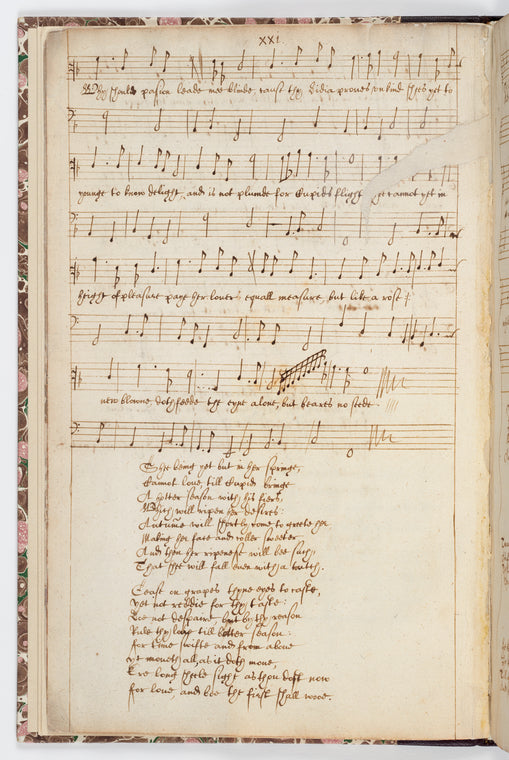 XXI.
Why should pasion leade mee blinde, cause thy Lidia proves unkind shee's yet to
younge to know delight, and is not plumde for Cupids flight she cannot yet in
height of pleasure paye her lover equall measure, but like a rose
new blowne, doth feede the eyne alone, but beares no seede
Shee being yet but in her springe,
Cannot love, till Cupid bringe
A hotter season with his fiers,
Which will ripen her desires:
Autume will shortly come to greete her
Making her face and coller sweeter
And then her ripenese will bee such,
That shee will fall even with a tutch.
Cease on grapes thyne eyes to caste,
yet not reddie for thy taste:
Doe not despaire but by thy reason
Rule thy till better season
for time swifte and from above
yt moueth all, as it doth moue,
Ere long sheele sight as thou dost now
for love and bee the first shall wooe.